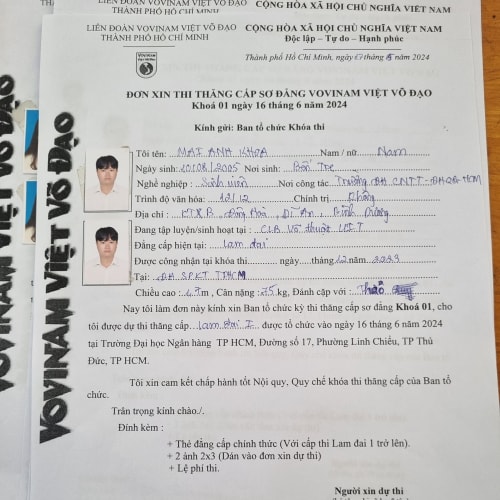 LIÊN ĐOÀN VOVINAM VIỆT VÕ ĐẠO
THÀNH PHỐ HỒ CHÍ MINH
CỘNG HÒA XÃ HỘI CHỦ NGHĨA VIỆT NAM
LIÊN ĐOÀN VOVINAM VIỆT VÕ ĐẠO
THÀNH PHỐ HỒ CHÍ MINH
CỘNG HÒA XÃ HỘI CHỦ NGHĨA VIỆT NAM
Độc lập – Tự do – Hạnh phúc
VOVINAM
Thành phố Hồ Chí Minh, ngày 2024
ĐƠN XIN THI THĂNG CẤP SƠ ĐẲNG VOVINAM VIỆT VÕ ĐẠO
Khoá 01 ngày 16 tháng 6 năm 2024
Kính gửi: Ban tổ chức Khóa thi
Tôi tên: MAI ANH KHOA Nam / nữ Nam
Ngày sinh: 10/08/2005 Nơi sinh: Bến Tre
Nghề nghiệp : Sinh viên Nơi công tác Trường ĐH CNTT - ĐHQG HCM
Trình độ văn hóa: 12/12 Chính trị: Không
Địa chỉ : KTX B, Đông Hoà, Dĩ An, Bình Dương
Đang tập luyện/sinh hoạt tại : CLB Võ thuật UIT
Đẳng cấp hiện tại: Lam đai
Được công nhận tại khóa thi ngày tháng 12 năm 2023
Tại: ĐH SPKT TPHCM
Chiều cao : 1,7m , Cân nặng : 75 kg, Đánh cặp với : Thảo
Nay tôi làm đơn này kính xin Ban tổ chức kỳ thi thăng cấp sơ đẳng Khoá 01, cho
tôi được dự thi thăng cấp Lam đai I được tổ chức vào ngày 16 tháng 6 năm 2024
tại Trường Đại học Ngân hàng TP HCM, Đường số 17, Phường Linh Chiểu, TP Thủ
Đức, TP HCM.
Tôi xin cam kết chấp hành tốt Nội quy, Quy chế khóa thi thăng cấp của Ban tổ
chức.
Trân trọng kính chào./.
Đính kèm :
+ Thẻ đẳng cấp chính thức (Với cấp thi Lam đai 1 trở lên).
+ 2 ảnh 2x3 (Dán vào đơn xin dự thi)
+ Lệ phí thi.
Người xin dự thi
VOVINAM VIỆT VÕ ĐẠO